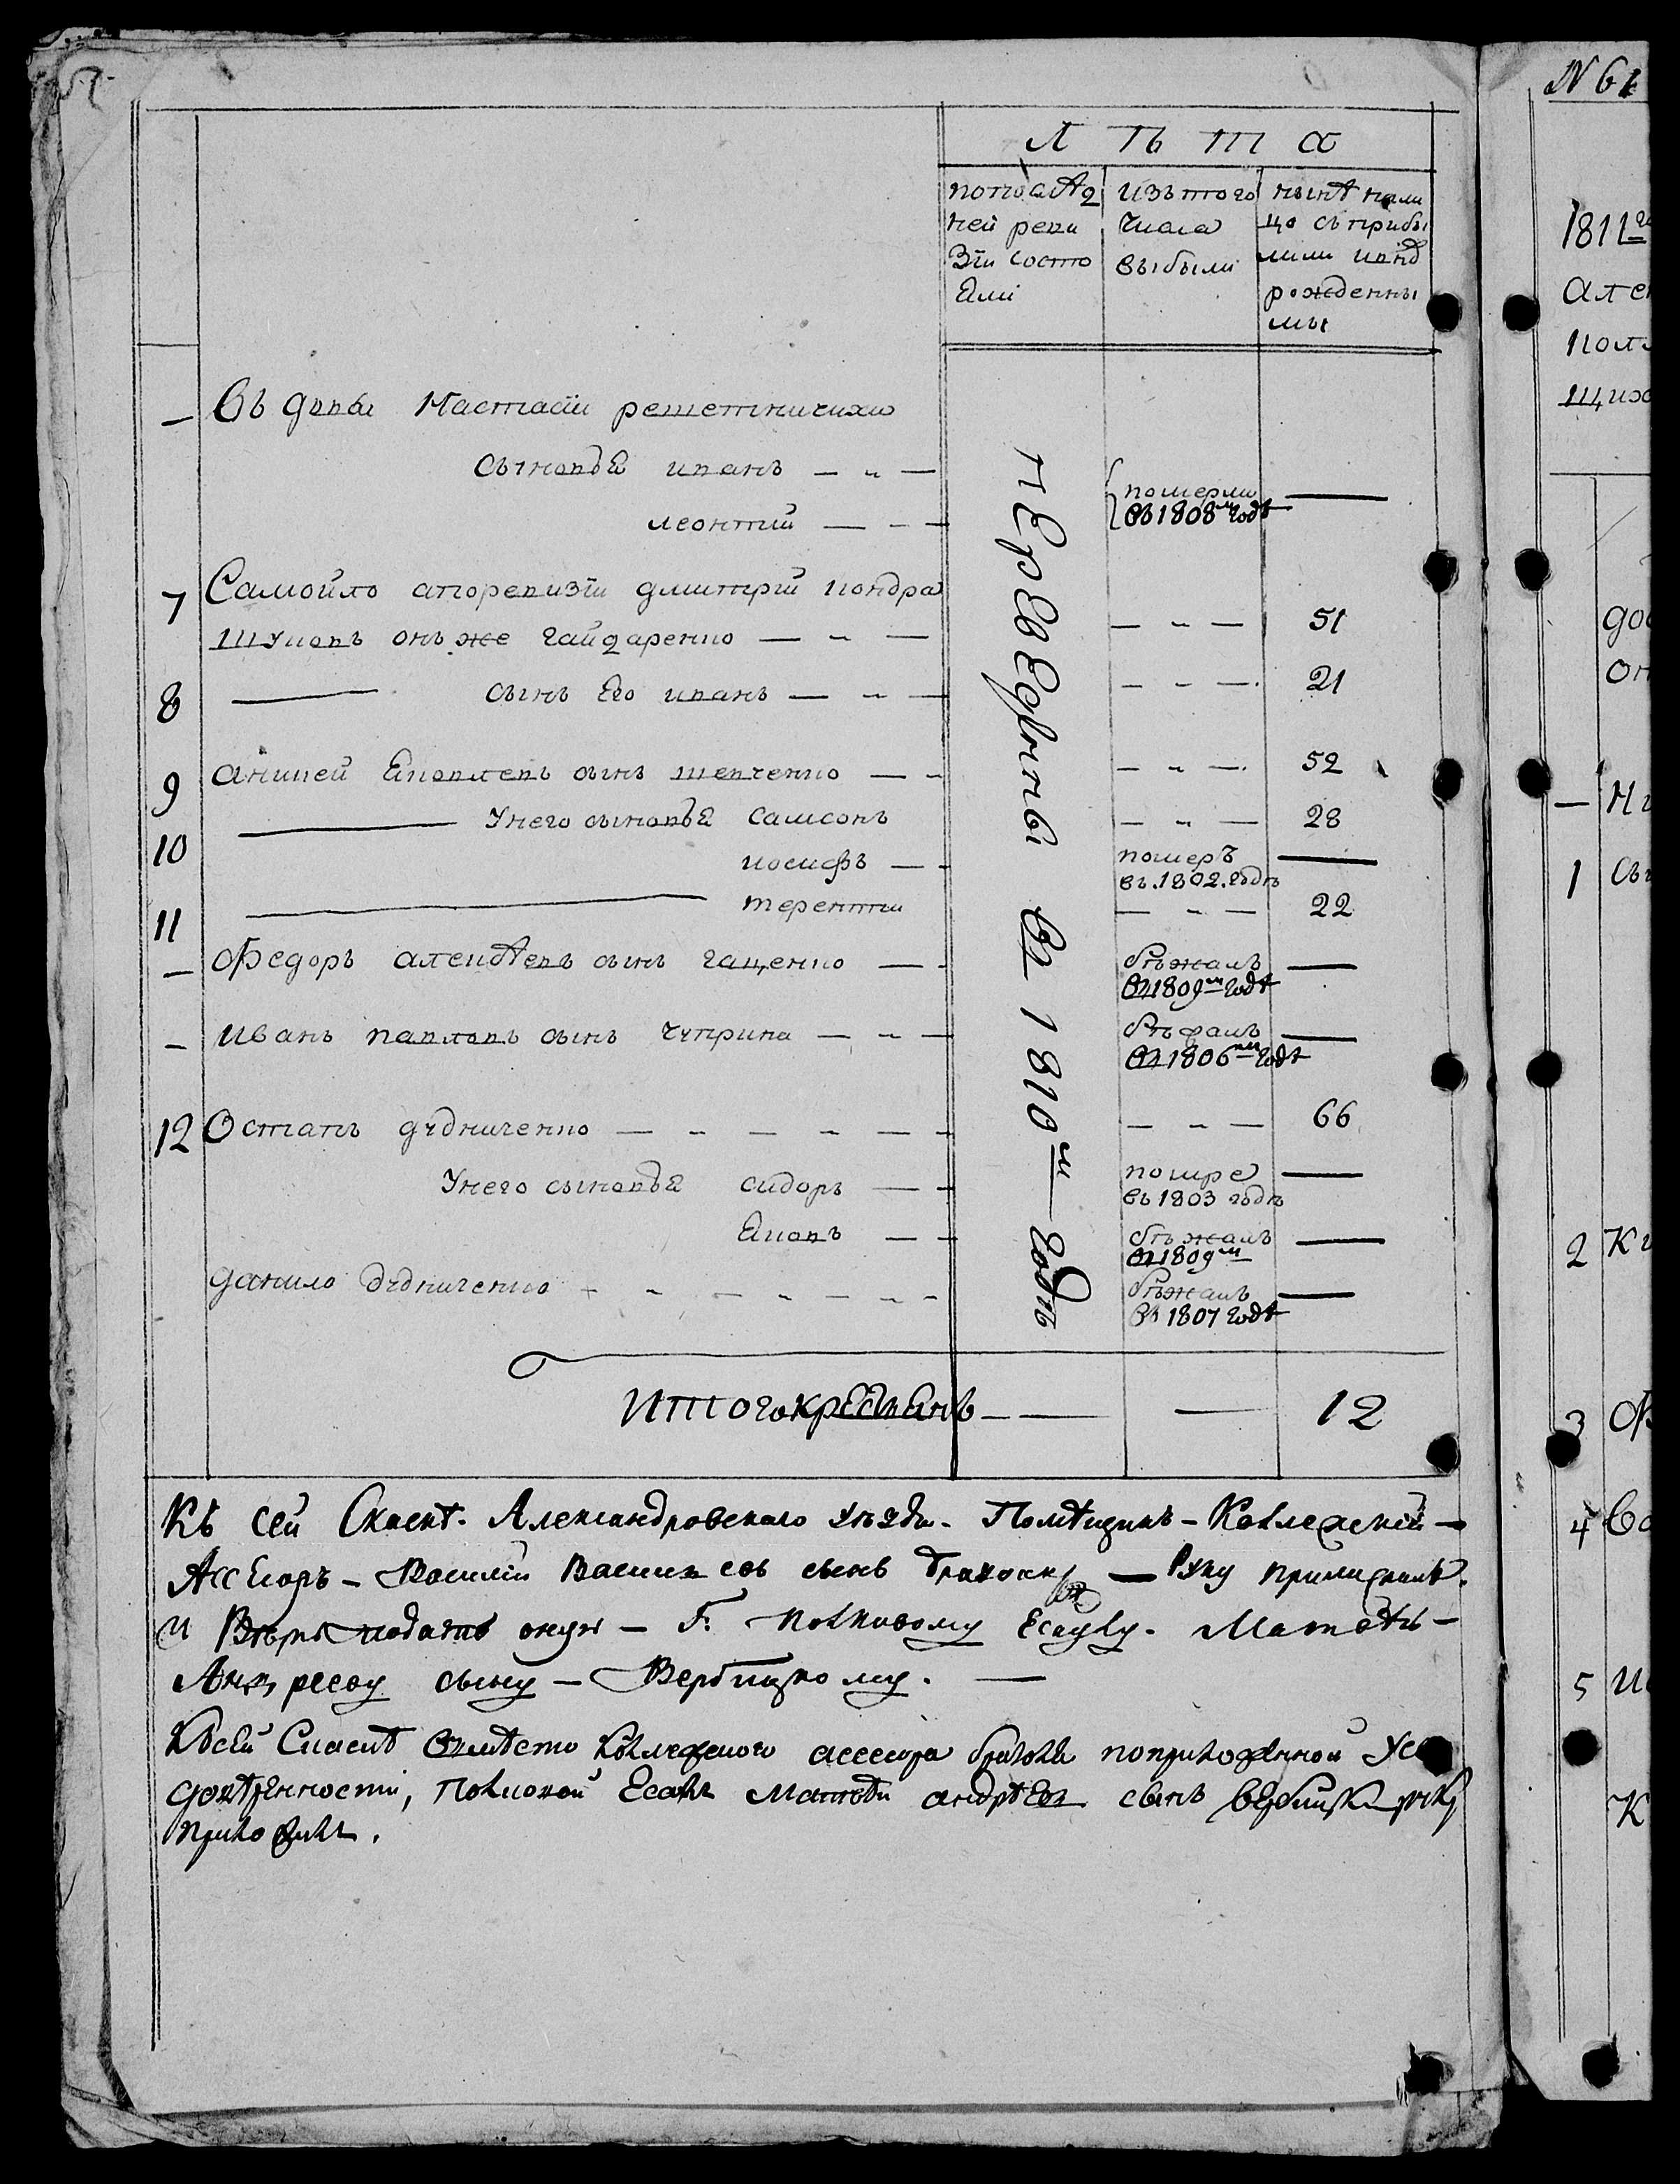 Л Ѣ Т А
по послѣд
ней реви
зіи состо
яли
изъ того
числа
выбыли
нынѣ нали
цо съ прибы
лыми и внѣ
рожденны
мы
— Вдовы Настасіи решетничихи
сыновья иванъ — „ —
леонтій — „ —
померли
въ 1808м годѣ
7 Самойло а по ревизіи дмитрій кондра
шуковъ онъ же гайдаренко — „ —
— „ — 51
8 — сынъ Его иванъ — „ —
— „ — 21
9 аникей яковлевъ сынъ шевченко — „
— „ — 52
10 — У него сыновья самсонъ
— „ — 28
иосифъ — „
померъ
въ 1802. годѣ
11 — терентій
— „ — 22
— Федоръ алексѣевъ сынъ гаценко — „
бѣжалъ
въ 1809м годѣ
— иванъ павловъ сынъ чуприна — „ —
бѣжалъ
въ 1806м годѣ
12 Остапъ дудниченко — „ — „ — „
— „ — 66
У него сыновья сидоръ — „
помре
въ 1803 годѣ
яковъ — „
бѣжалъ
въ 1809м
данило дудниченко — „ — „ — „ —
бѣжалъ
въ 1807 годѣ
пЕрЕвЕдѣнны въ 1810м годѣ
Итого крестьянъ — — 12
Къ сей Сказкѣ Александровскаго уѣзда Помѣщикъ Коллежскій
Ассесоръ Василій Васильевъ сынъ Руку приложилъ
и Вѣрю подать оную Г. полковому Есаулу Матвѣю
Андрееву сыну Вербицкому.
Къ сей Сказкѣ вмѣсто Коллежского асессора по приложенной
довѣренности, Полковой Есаулъ Матвѣй андрѣевъ сынъ вербицкій руку
приложилъ.
N 61
1811го
1
2
3
4
5